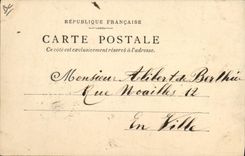 RÉPUBLIQUE FRANÇAISE
CARTE POSTALE
Ce côté est exclusivement réservé à l'adresse.
Monsieur Alibert de Berthier
Rue Noailles 12
En Ville